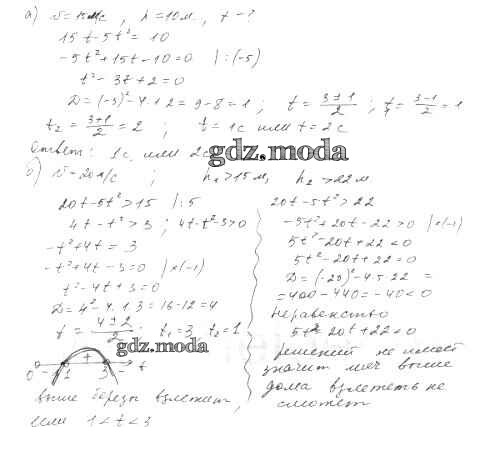 а) v = 15 м/с, h = 10 м, t - ?
15t - 5t² = 10
-5t² + 15t - 10 = 0 | : (-5)
t² - 3t + 2 = 0
D = (-3)² - 4·1·2 = 9 - 8 = 1; t = (3±1)/2; t₁ = (3-1)/2 = 1
t₂ = (3+1)/2 = 2; t = 1с или t = 2с
Ответ: 1с или 2с
gdz.moda
б) v = 20 м/с; h₁ > 15 м, h₂ > 22 м
20t - 5t² > 15 | : 5
4t - t² > 3; 4t - t² - 3 > 0
-t² + 4t = 3
-t² + 4t - 3 = 0 | ×(-1)
t² - 4t + 3 = 0
D = 4² - 4·1·3 = 16 - 12 = 4
t = (4±2)/2; t₁ = 3, t₂ = 1
gdz.moda
0 - 1 + 3 - t
выше березы взлетит,
если 1 < t < 3
20t - 5t² > 22
-5t² + 20t - 22 > 0 | ×(-1)
5t² - 20t + 22 < 0
5t² - 20t + 22 = 0
D = (-20)² - 4·5·22 =
= 400 - 440 = -40 < 0
Неравенство
5t² - 20t + 22 < 0
решений не имеет
значит мяч выше
дома взлететь не
сможет